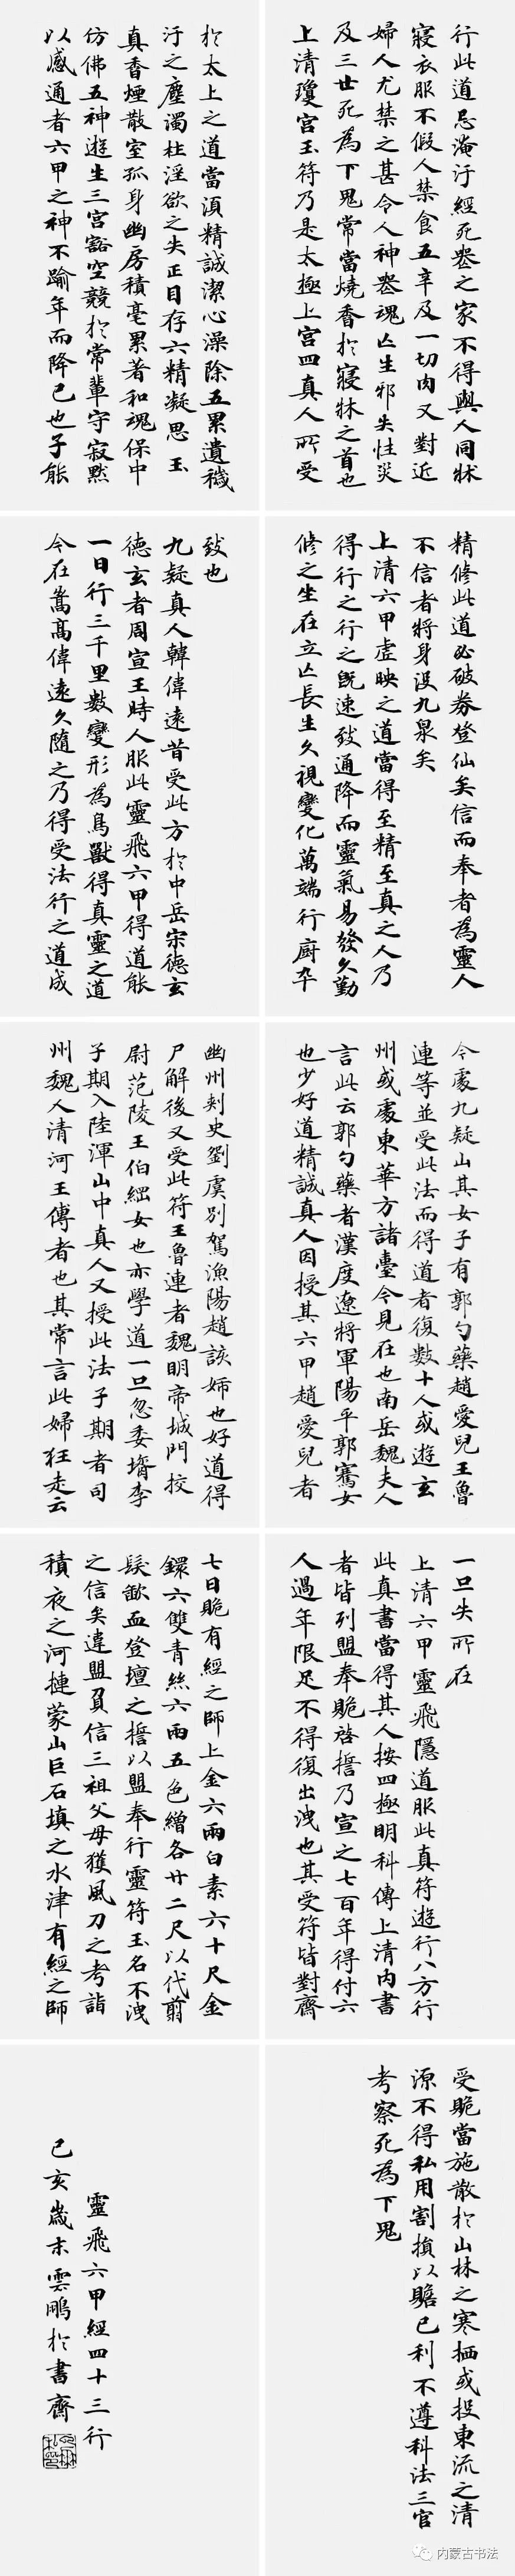 行此道忌淹汙經死喪之家不得與人同牀
寢衣服不假人禁食五辛及一切肉又對近
婦人尤禁之甚令人神喪魂亡生邪失性災
及三世死為下鬼常當燒香於寢牀之首也
上清瓊宫玉符乃是太極上宫四真人所受
於太上之道當須精誠潔心澡除五累遺穢
汙之塵濁杜淫欲之失正目存六精凝思玉
真香煙散室孤身幽房積毫累著和魂保中
仿佛五神遊生三宫豁空競於常輩守寂默
以感通者六甲之神不踰年而降已也子能
精修此道必破券登仙矣信而奉者為靈人
不信者將身沒九泉矣
上清六甲虛映之道當得至精至真之人乃
得行之行之既速致通降而靈氣易發久勤
修之坐在立亡長生久視變化萬端行廚卒
致也
九疑真人韓偉遠昔受此方於中岳宗德玄
德玄者周宣王時人服此靈飛六甲得道能
一日行三千里數變形為鳥獸得真靈之道
今在嵩高偉遠久隨之乃得受法行之道成
今處九疑山其女子有郭勺藥趙愛兒王魯
連等並受此法而得道者復數十人或遊玄
州或處東華方諸臺今見在也南岳魏夫人
言此云郭勺藥者漢度遼將軍陽平郭騫女
也少好道精誠真人因授其六甲趙愛兒者
幽州刾史劉虞别駕漁陽趙該姉也好道得
尸解後又受此符王魯連者魏明帝城門校
尉范陵王伯綱女也亦學道一旦忽委壻李
子期入陸渾山中真人又授此法子期者司
州魏人清河王傳者也其常言此婦狂走云
一旦失所在
上清六甲靈飛隱道服此真符遊行八方行
此真書當得其人按四極明科傳上清內書
者皆列盟奉贶啓誓乃宣之七百年得付六
人過年限足不得復出洩也其受符皆對齋
七日贶有經之師上金六兩白素六十尺金
鐶六雙青絲六兩五色繒各廿二尺以代翦
髮歃血登壇之誓以盟奉行靈符玉名不洩
之信矣違盟負信三祖父母獲風刀之考詣
積夜之河摙蒙山巨石填之水津有經之師
受贶當施散於山林之寒栖或投東流之清
源不得私用割損以贍已利不遵科法三官
考察死為下鬼
靈飛六甲經四十三行
己亥歲末雲鵬於書齋
内蒙古书法